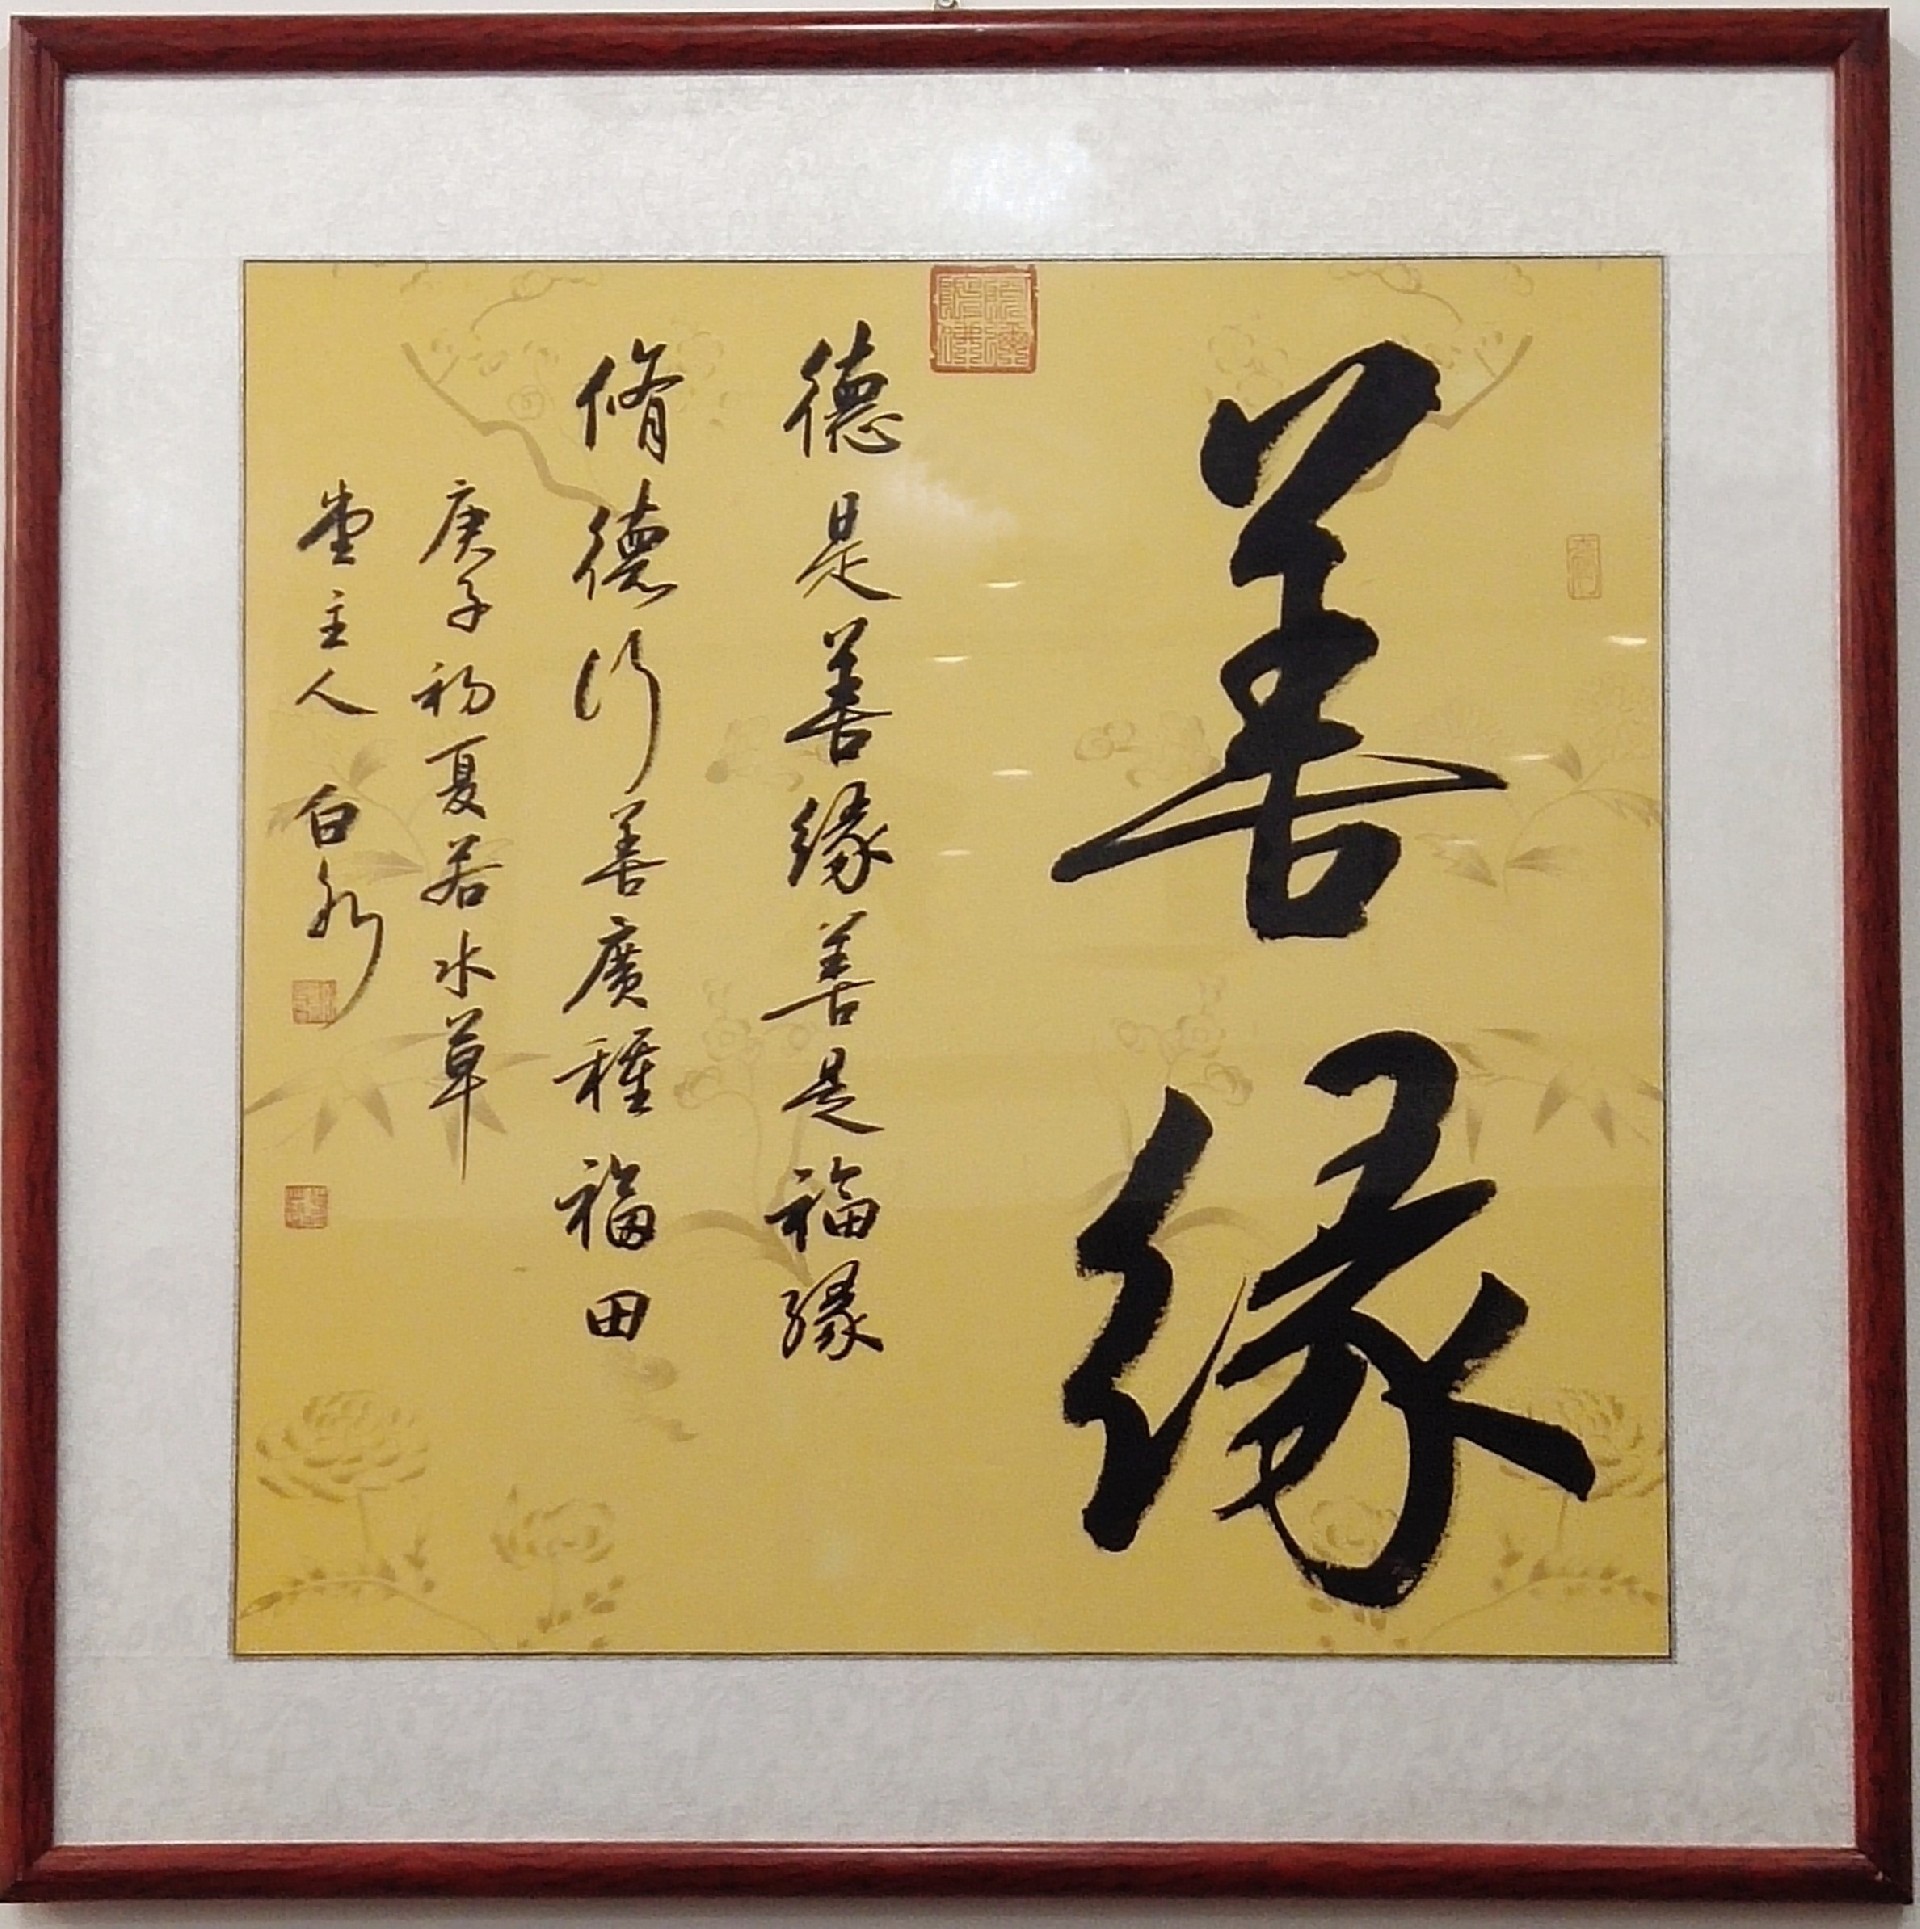 善缘
德是善缘善是福缘
脩德行善廣種福田
庚子初夏若水草
堂主人白